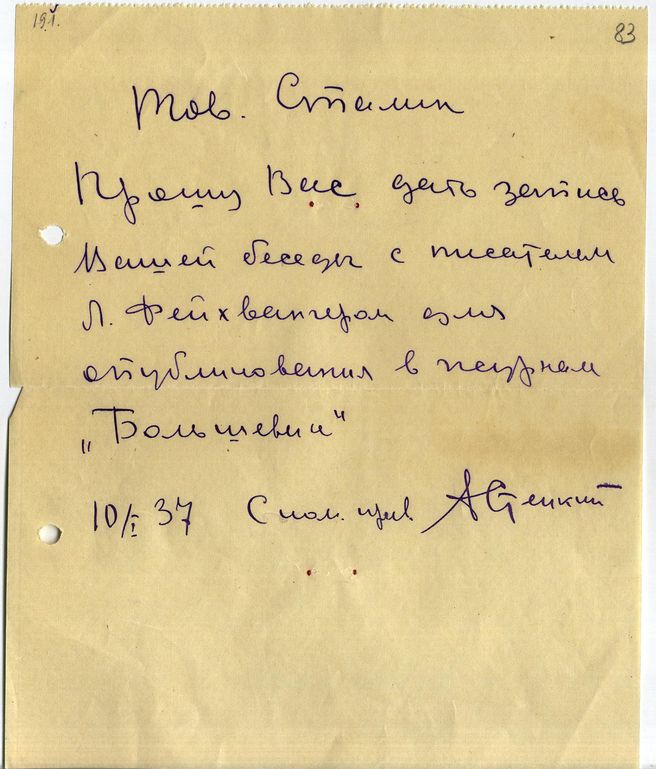 19.I.
83
Тов. Сталин
Прошу Вас дать запись
Вашей беседы с писателем
Л. Фейхвангером для
опубликования в журнал
„Большевик"
10/I 37 С ком. прив АСтецкий